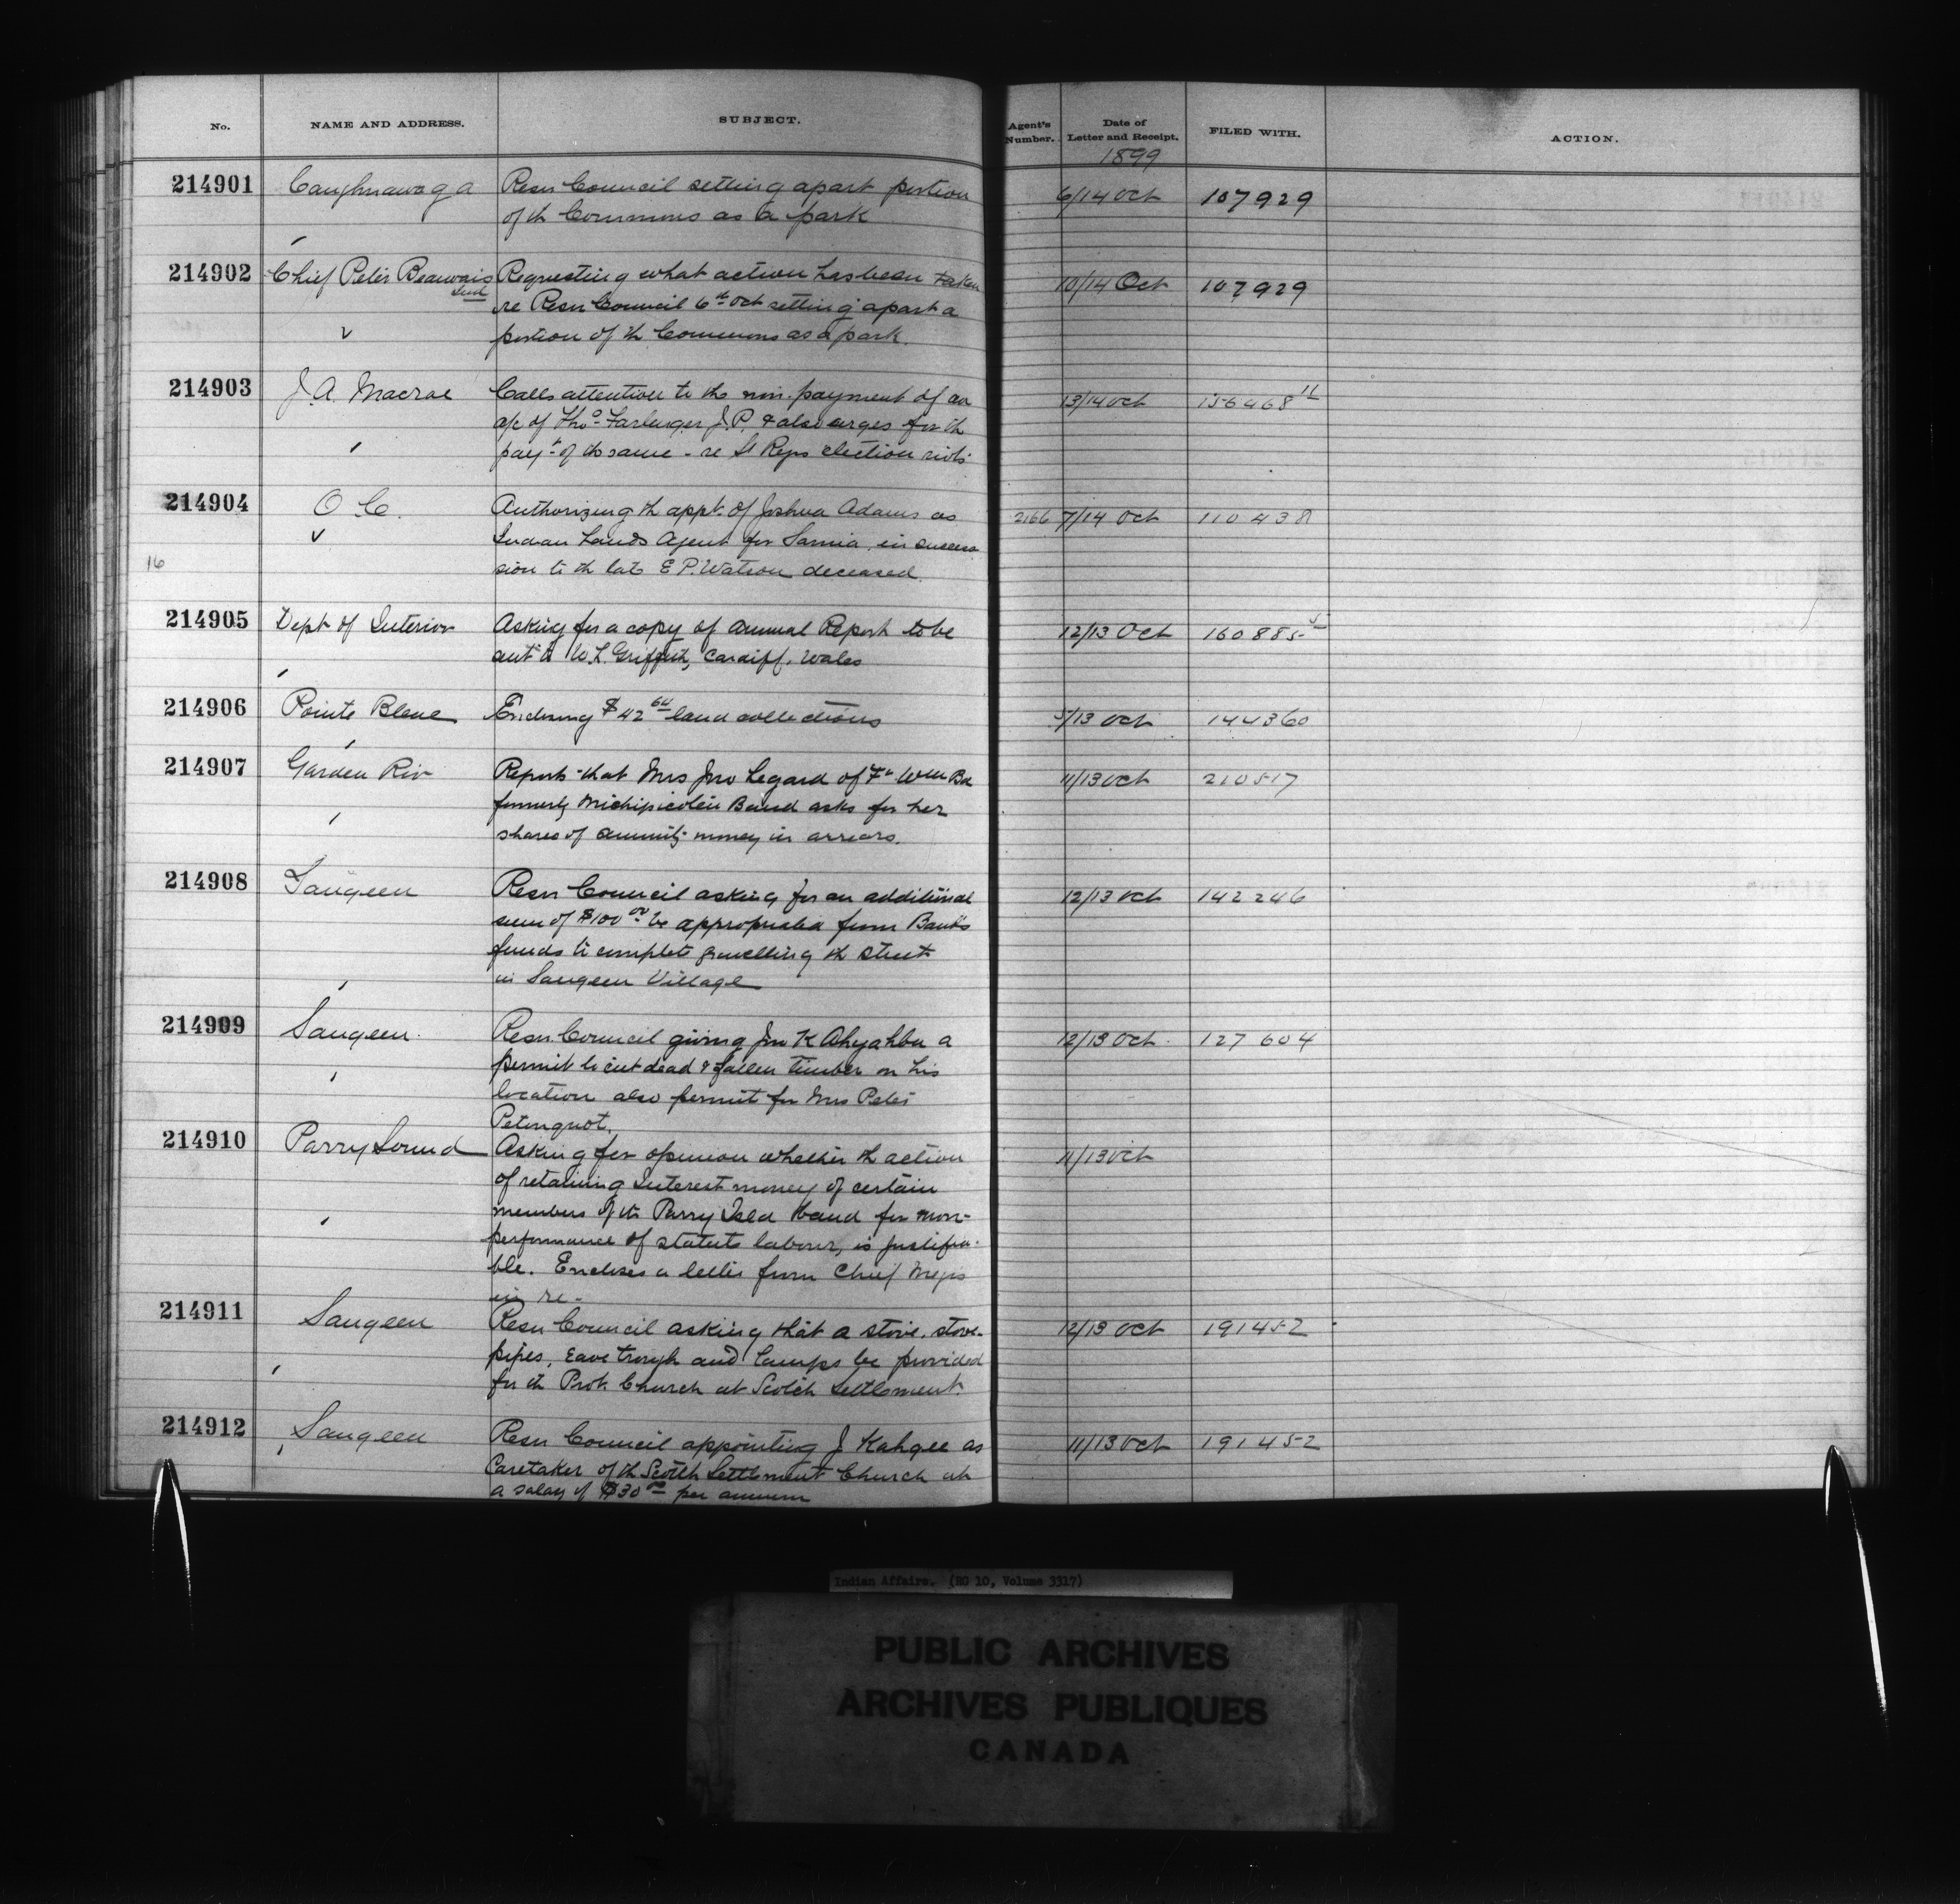 No. NAME AND ADDRESS. SUBJECT. Agent's Number. Date of Letter and Receipt. FILED WITH. ACTION.
1899
214901 Caughnawaga Resn Council setting apart portion 6/14 Oct 107929
of th Commons as a park
214902 Chief Peter Beauvais Requesting what action has been taken 10/14 Oct 107929
re Resn Council 6th Oct setting apart a
portion of th Commons as a park.
214903 J. A. Macrae Calls attention to the non-payment of an 13/14 Oct 156468 11
a/c of Thos J.P. & also urges for th
payt of th same - re St Regis election riots
214904 O C. Authorizing th appt. of Joshua Adams as 2166 7/14 Oct 110438
Indian Lands Agent for Sarnia in succes
16 sion to th late E P. Watson deceased.
214905 Dept of Interior Asking for a copy of Annual Report to be 12/13 Oct 160885 5
sent to W. L. Griffith, Cardiff, Wales
214906 Pointe Bleue Enclosing $42 64 land collections 5/13 Oct 144360
214907 Garden Riv Reports that Mrs Jno Legard of Ft Wm Bd 11/13 Oct 210517
formerly Michipicoten Band asks for her
shares of annuity money in arrears.
214908 Saugeen Resn Council asking for an additional 12/13 Oct 142246
sum of $100 00 be appropriated from Band's
funds to complete gravelling th street
in Saugeen Village
214909 Saugeen Resn Council giving Jno K Ahyahba a 12/13 Oct. 127604
permit to cut dead & fallen timber on his
location also permit for Mrs Peter
Petonquot.
214910 Parry Sound Asking for opinion whether th action 11/13 Oct
of retaining Interest money of certain
members of th Parry Isld Band for non-
performance of statute labour, is justifia-
ble. Encloses a letter from Chief Megis
in re-
214911 Saugeen Resn Council asking that a stove, stove- 12/13 Oct 191452
pipes, eave trough and lamps be provided
for th Prot. Church at Scotch Settlement.
214912 Saugeen Resn Council appointing J Kahgee as 11/13 Oct 191452
Caretaker of th Scotch Settlement Church at
a salary of $30 00 per annum
Indian Affairs. (RG 10, Volume 3317)
PUBLIC ARCHIVES
ARCHIVES PUBLIQUES
CANADA